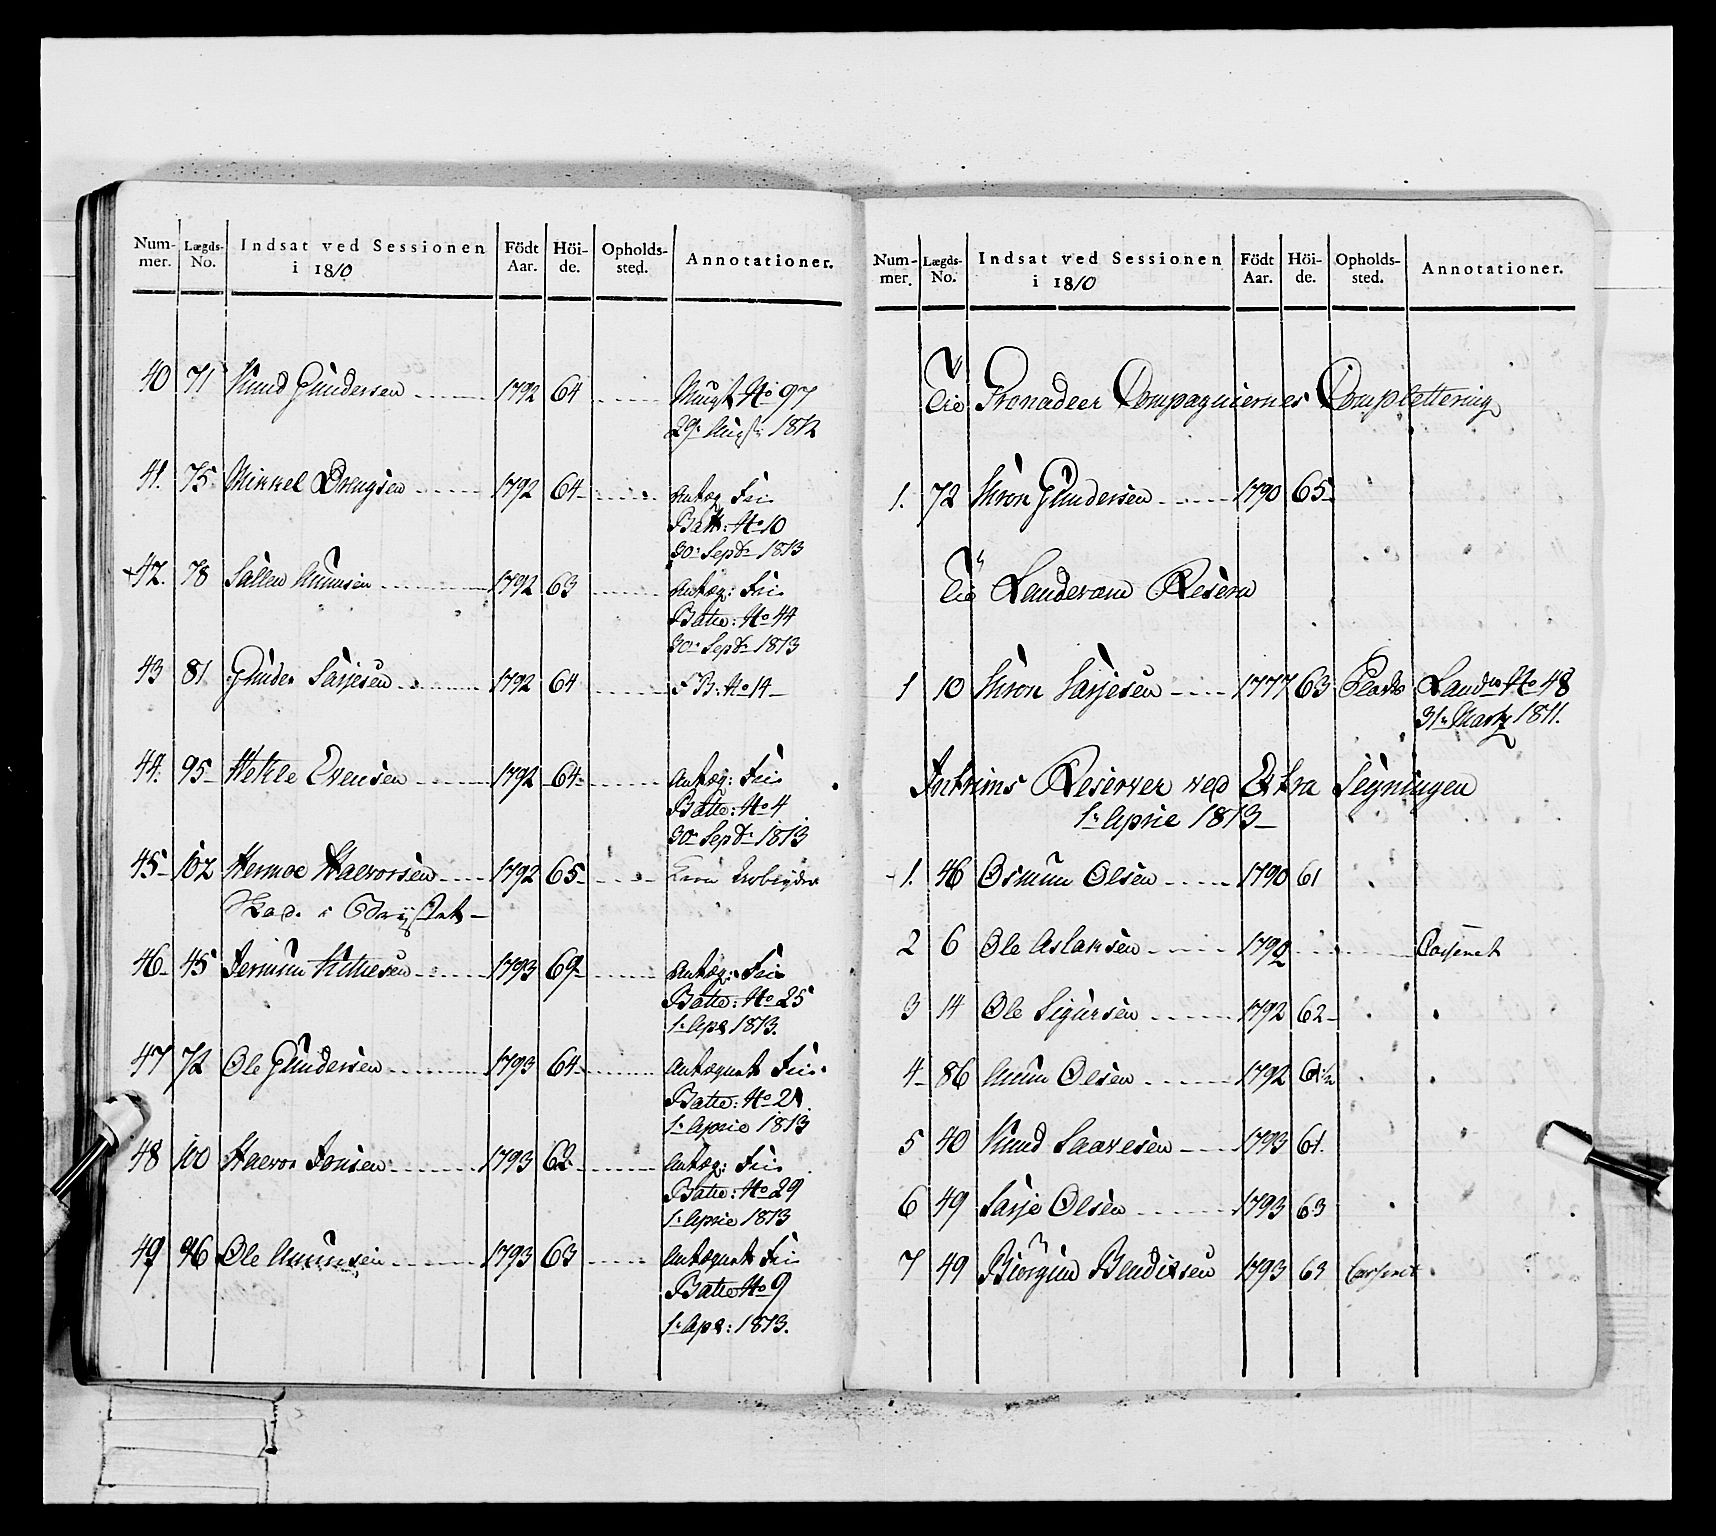 Num-mer. Lægds-No. Indsat ved Sessionen i 1810 Födt Aar. Höi-de. Opholds-sted. Annotationer.
40 71 Knud Gundersen 1792 64 No 97
29 Augst 1812
41. 75 Mikkel 1792 64 Antag: Frie
Batt: No 10
30 Septr 1813
42. 78 1792 63 Antag: Frie
Batte: No 44
30 Septr 1813
43 81 Gunder Tarjesen 1792 64 F B: No 14
44. 95 Helle Evensen 1792 64 Antag: Frie
Batte: No 4
30 Septr 1813
45 102 Hermoe Halvorsen 1792 65
46 45 1793 69 Antag: Frie
Batte: No 25
1 Apr 1813.
47 72 Ole Gundersen 1793 64 Antaget Frie
Batte: No 21
1 April 1813
48 100 Halvor Jonsen 1793 62 Antag: Frie
Batte: No 29
1 April 1813
49 96 Ole Amunsen 1793 63 Antaget Frie
Batte No 9
1 Apr: 1813.
Num-mer. Lægds-No. Indsat ved Sessionen i 1810 Födt Aar. Höi-de. Opholds-sted. Annotationer.
Til Gronadeer Compagniernes Complettering
1. 72 Gundersen 1790 65
Til Landeværn Reserv
1 10 Tarjesen 1777 63 Landv No 48
31 Martz 1811.
Intrims Reserver ved Extra Segningen
1 April 1813
1. 46 Osmun Olsen 1790 61
2 6 Ole Aslaksen 1792 Casseret
3 14 Ole Sigursen 1792 62
4 86 Amun Olsen 1792 61 1/2
5 40 Knud Saavesen 1793 61.
6 49 Tarje Olsen 1793 63
7 49 Biörgun Bendixsen 1793 63 Casseret